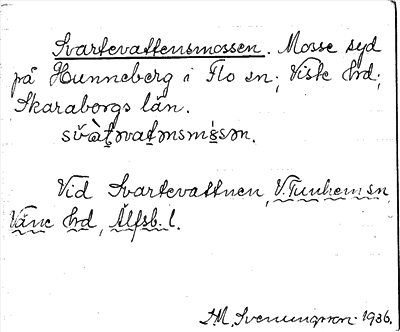 Svartevattensmossen. Mosse syd
på Hunneberg i Flo sn; Viste hd;
Skaraborgs län.
Vid Svartevattnen, V. Tunhem sn,
Väne hd, Älfsb. l.
D.M. Svenungsson 1936.